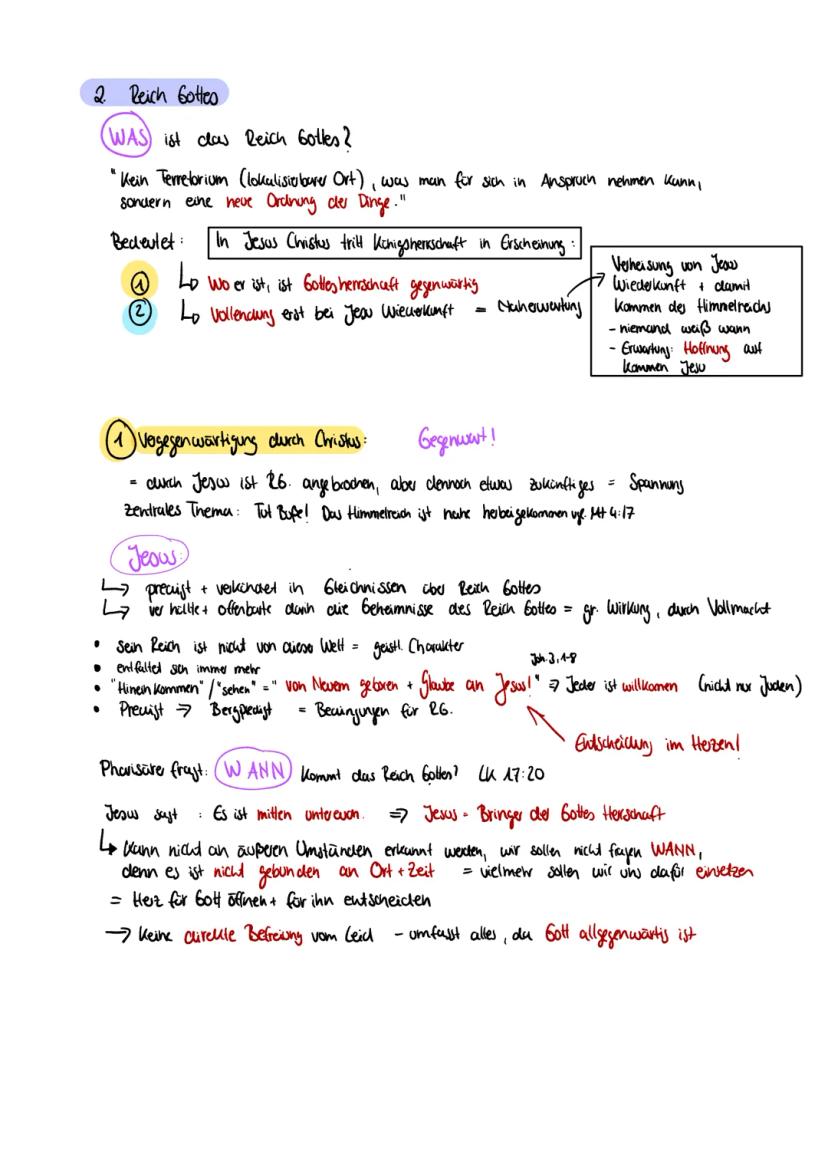 2. Reich Gottes
WAS ist das Reich Gottes?
"Kein Terretorium (lokalisierbarer Ort), was man für sich in Anspruch nehmen kann,
sondern eine neue Ordnung der Dinge."
Bedeutet: In Jesus Christus tritt Königsherrschaft in Erscheinung:
① ↳ Wo er ist, ist Gottesherrschaft gegenwärtig
② ↳ Vollendung erst bei Jesu Wiederkunft = Naherwartung
Verheisung von Jesu
Wiederkunft + damit
kommen des Himmelreichs
- niemand weiß wann
- Erwartung: Hoffnung auf
kommen Jesu
① Vergegenwärtigung durch Christus: Gegenwart!
= durch Jesus ist RG. angebrochen, aber dennoch etwas zukünftiges = Spannung
zentrales Thema: Tut Buße! Das Himmelreich ist nahe herbeigekommen vgl. Mt 4:17
Jesus:
↳ predigt + verkündet in Gleichnissen über Reich Gottes
↳ verhüllt + offenbarte darin die Geheimnisse des Reich Gottes = gr. Wirkung, durch Vollmacht
• sein Reich ist nicht von dieser Welt = geistl. Charakter
• entfaltet sich immer mehr
Joh. 3, 1-8
• "Hinein kommen" / "sehen" = "von Neuem geboren + Glaube an Jesus!" ⇒ Jeder ist willkomen (nicht nur Juden)
• Predigt → Bergpredigt = Bedingungen für RG.
Entscheidung im Herzen!
Pharisäer fragt: WANN kommt das Reich Gottes? LK 17:20
Jesus sagt : Es ist mitten unter euch. ⇒ Jesus = Bringer der Gottes Herschaft
↳ kann nicht an äußeren Umständen erkannt werden, wir sollen nicht fragen WANN,
denn es ist nicht gebunden an Ort + Zeit = vielmehr sollen wir uns dafür einsetzen
= Herz für Gott öffnen + für ihn entscheiden
→ Keine direkte Befreiung vom Leid - umfasst alles, da Gott allgegenwärtig ist